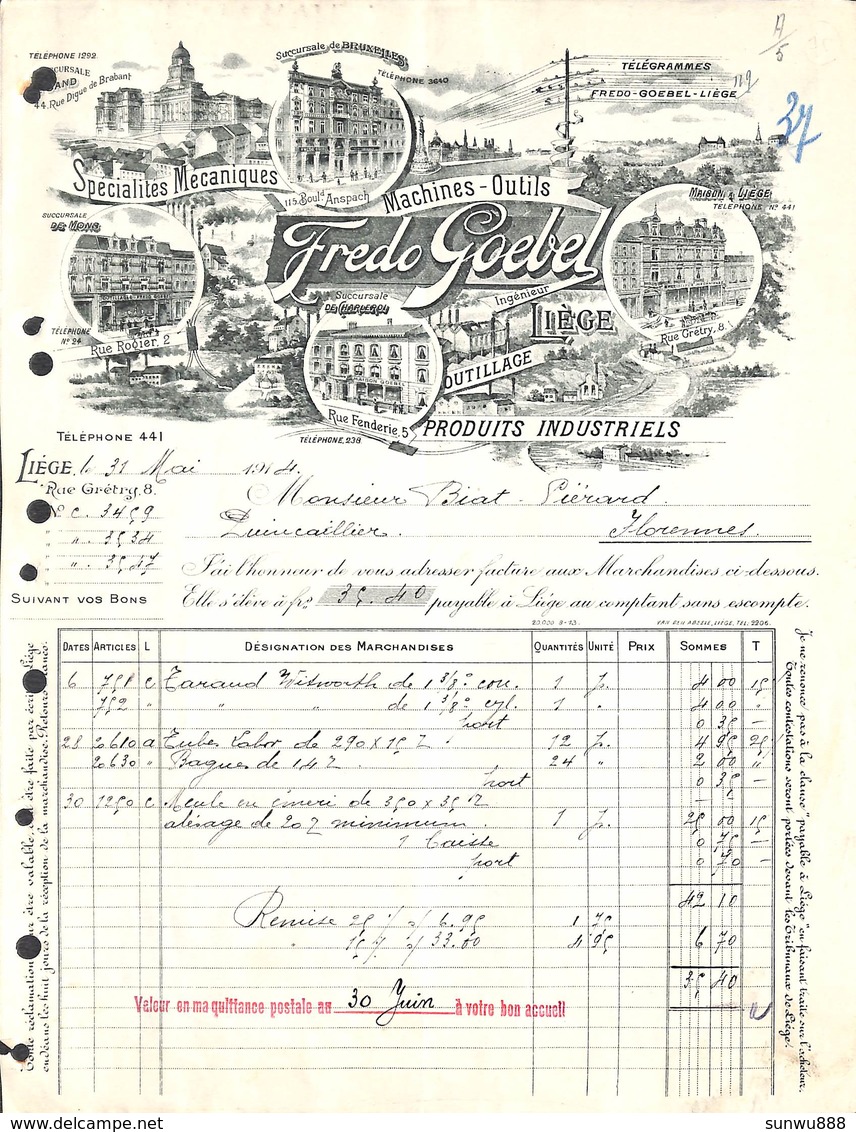 TÉLÉPHONE 1292
SUCCURSALE
GAND
44. Rue Digue de Brabant
Succursale de BRUXELLES
TÉLÉPHONE 3640
115, Boulᵈ Anspach
TÉLÉGRAMMES
FREDO-GOEBEL-LIÉGE
A/5
119
37
Spécialités Mécaniques
Machines-Outils
SUCCURSALE
DE MONS
TÉLÉPHONE
Nº 24
Rue Rogier, 2
Fredo Goebel
Ingénieur
LIÈGE
MAISON À LIÈGE
TÉLÉPHONE Nº 441
Rue Grétry, 8.
Succursale
DE CHARLEROI
MAISON GOEBEL
Rue Fenderie, 5
TÉLÉPHONE, 238
OUTILLAGE
PRODUITS INDUSTRIELS
TÉLÉPHONE 441
LIÉGE, le 31 Mai 1914.
Rue Grétry, 8.
Monsieur Biat-Piérard.
Nº C. 3459
Quincaillier. Florennes.
" " 3534
" " 3547
J'ai l'honneur de vous adresser facture aux Marchandises ci-dessous.
SUIVANT VOS BONS
Elle s'élève à frˢ 35.40 payable à Liége au comptant sans escompte.
20.000 8-13. VAN DEN ABEELE, LIÉGE, TEL. 2206.
DATES ARTICLES L DÉSIGNATION DES MARCHANDISES QUANTITÉS UNITÉ PRIX SOMMES T
6 751 c Taraud Witworth de 1 3/8" con. 1 p. 4 00 15
752 " " " de 1 3/8" cyl. 1 " 4 00 "
port 0 35 —
28 20610 a Tubes Labor de 290 x 15 % 12 p. 4 95 25
20630 " Bagues de 14 % 24 " 2 00 "
port 0 35 —
30 1250 c Meule en émeri de 350 x 35 %
alésage de 20 % minimum 1 p. 25 00 15
1 Caisse 0 75 —
port 0 70 —
42 10
Remise 25 % s/ 6.95 1 75
" 15 % s/ 33.00 4 95 6 70
35 40
Valeur en ma quittance postale au 30 Juin à votre bon accueil
Toute réclamation, pour être valable, doit être faite par écrit à Liége
endéans les huit jours de la réception de la marchandise.
Je ne renonce pas à la clause "payable à Liége" en faisant traite sur l'acheteur.
Toutes contestations seront portées devant les Tribunaux de Liége.
sunwu888